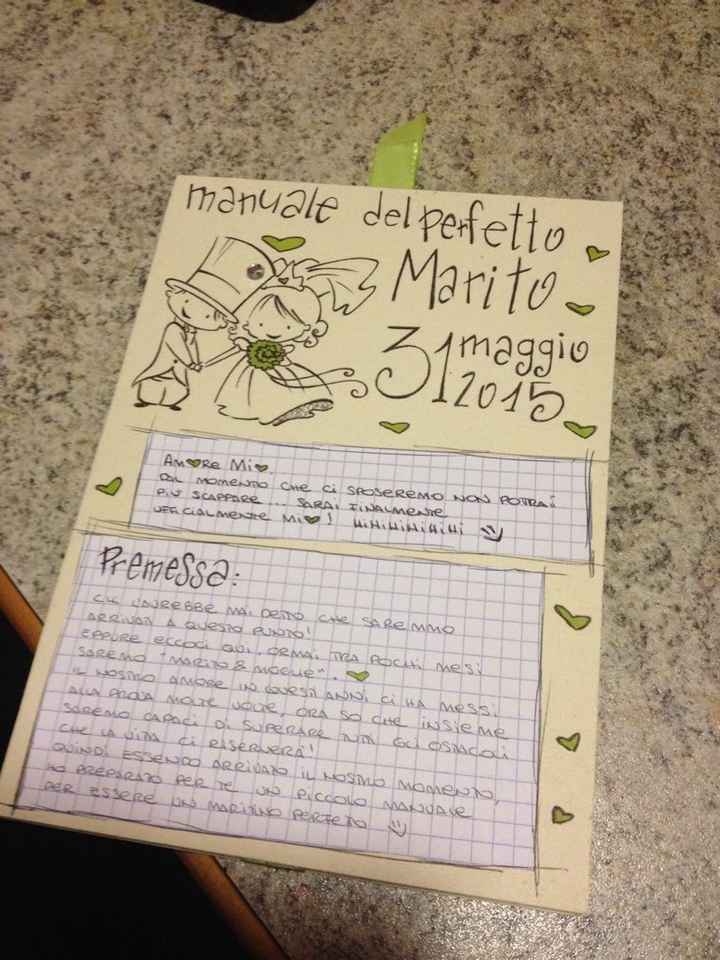 manuale del perfetto
Marito
31 maggio
2015
AMORE MIO
DAL MOMENTO CHE CI SPOSEREMO NON POTRAI
PIÙ SCAPPARE ... SARAI FINALMENTE
UFFICIALMENTE MIO! HIHIHIHIHIHI
Premessa:
CHI L'AVREBBE MAI DETTO CHE SAREMMO
ARRIVATI A QUESTO PUNTO!
EPPURE ECCOCI QUI, ORMAI TRA POCHI MESI
SAREMO "MARITO & MOGLIE".
IL NOSTRO AMORE IN QUESTI ANNI CI HA MESSI
ALLA PROVA MOLTE VOLTE, ORA SO CHE INSIEME
SAREMO CAPACI DI SUPERARE TUTTI GLI OSTACOLI
CHE LA VITA CI RISERVERÀ!
QUINDI ESSENDO ARRIVATO IL NOSTRO MOMENTO,
HO PREPARATO PER TE UN PICCOLO MANUALE
PER ESSERE UN MARITINO PERFETTO